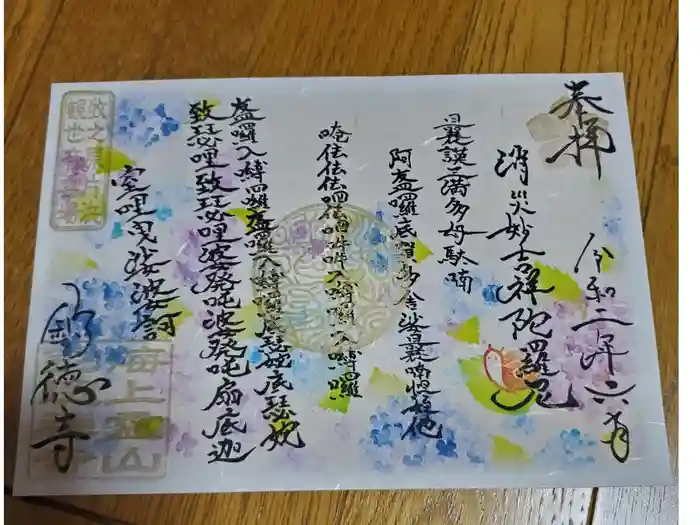 奉拝
令和二年六月
消災妙吉祥陀羅尼
曩謨三滿多母駄喃
阿盋囉底賀多舍娑曩喃怛姪他
唵佉佉佉呬佉呬吽吽入嚩囉入嚩囉
盋囉入嚩囉盋囉入嚩囉底瑟姹底瑟姹
致瑟哩致瑟哩娑癹吒娑癹吒扇底迦
室哩曳娑婆訶
徳寺
牧之原片浜
観世音
海上山